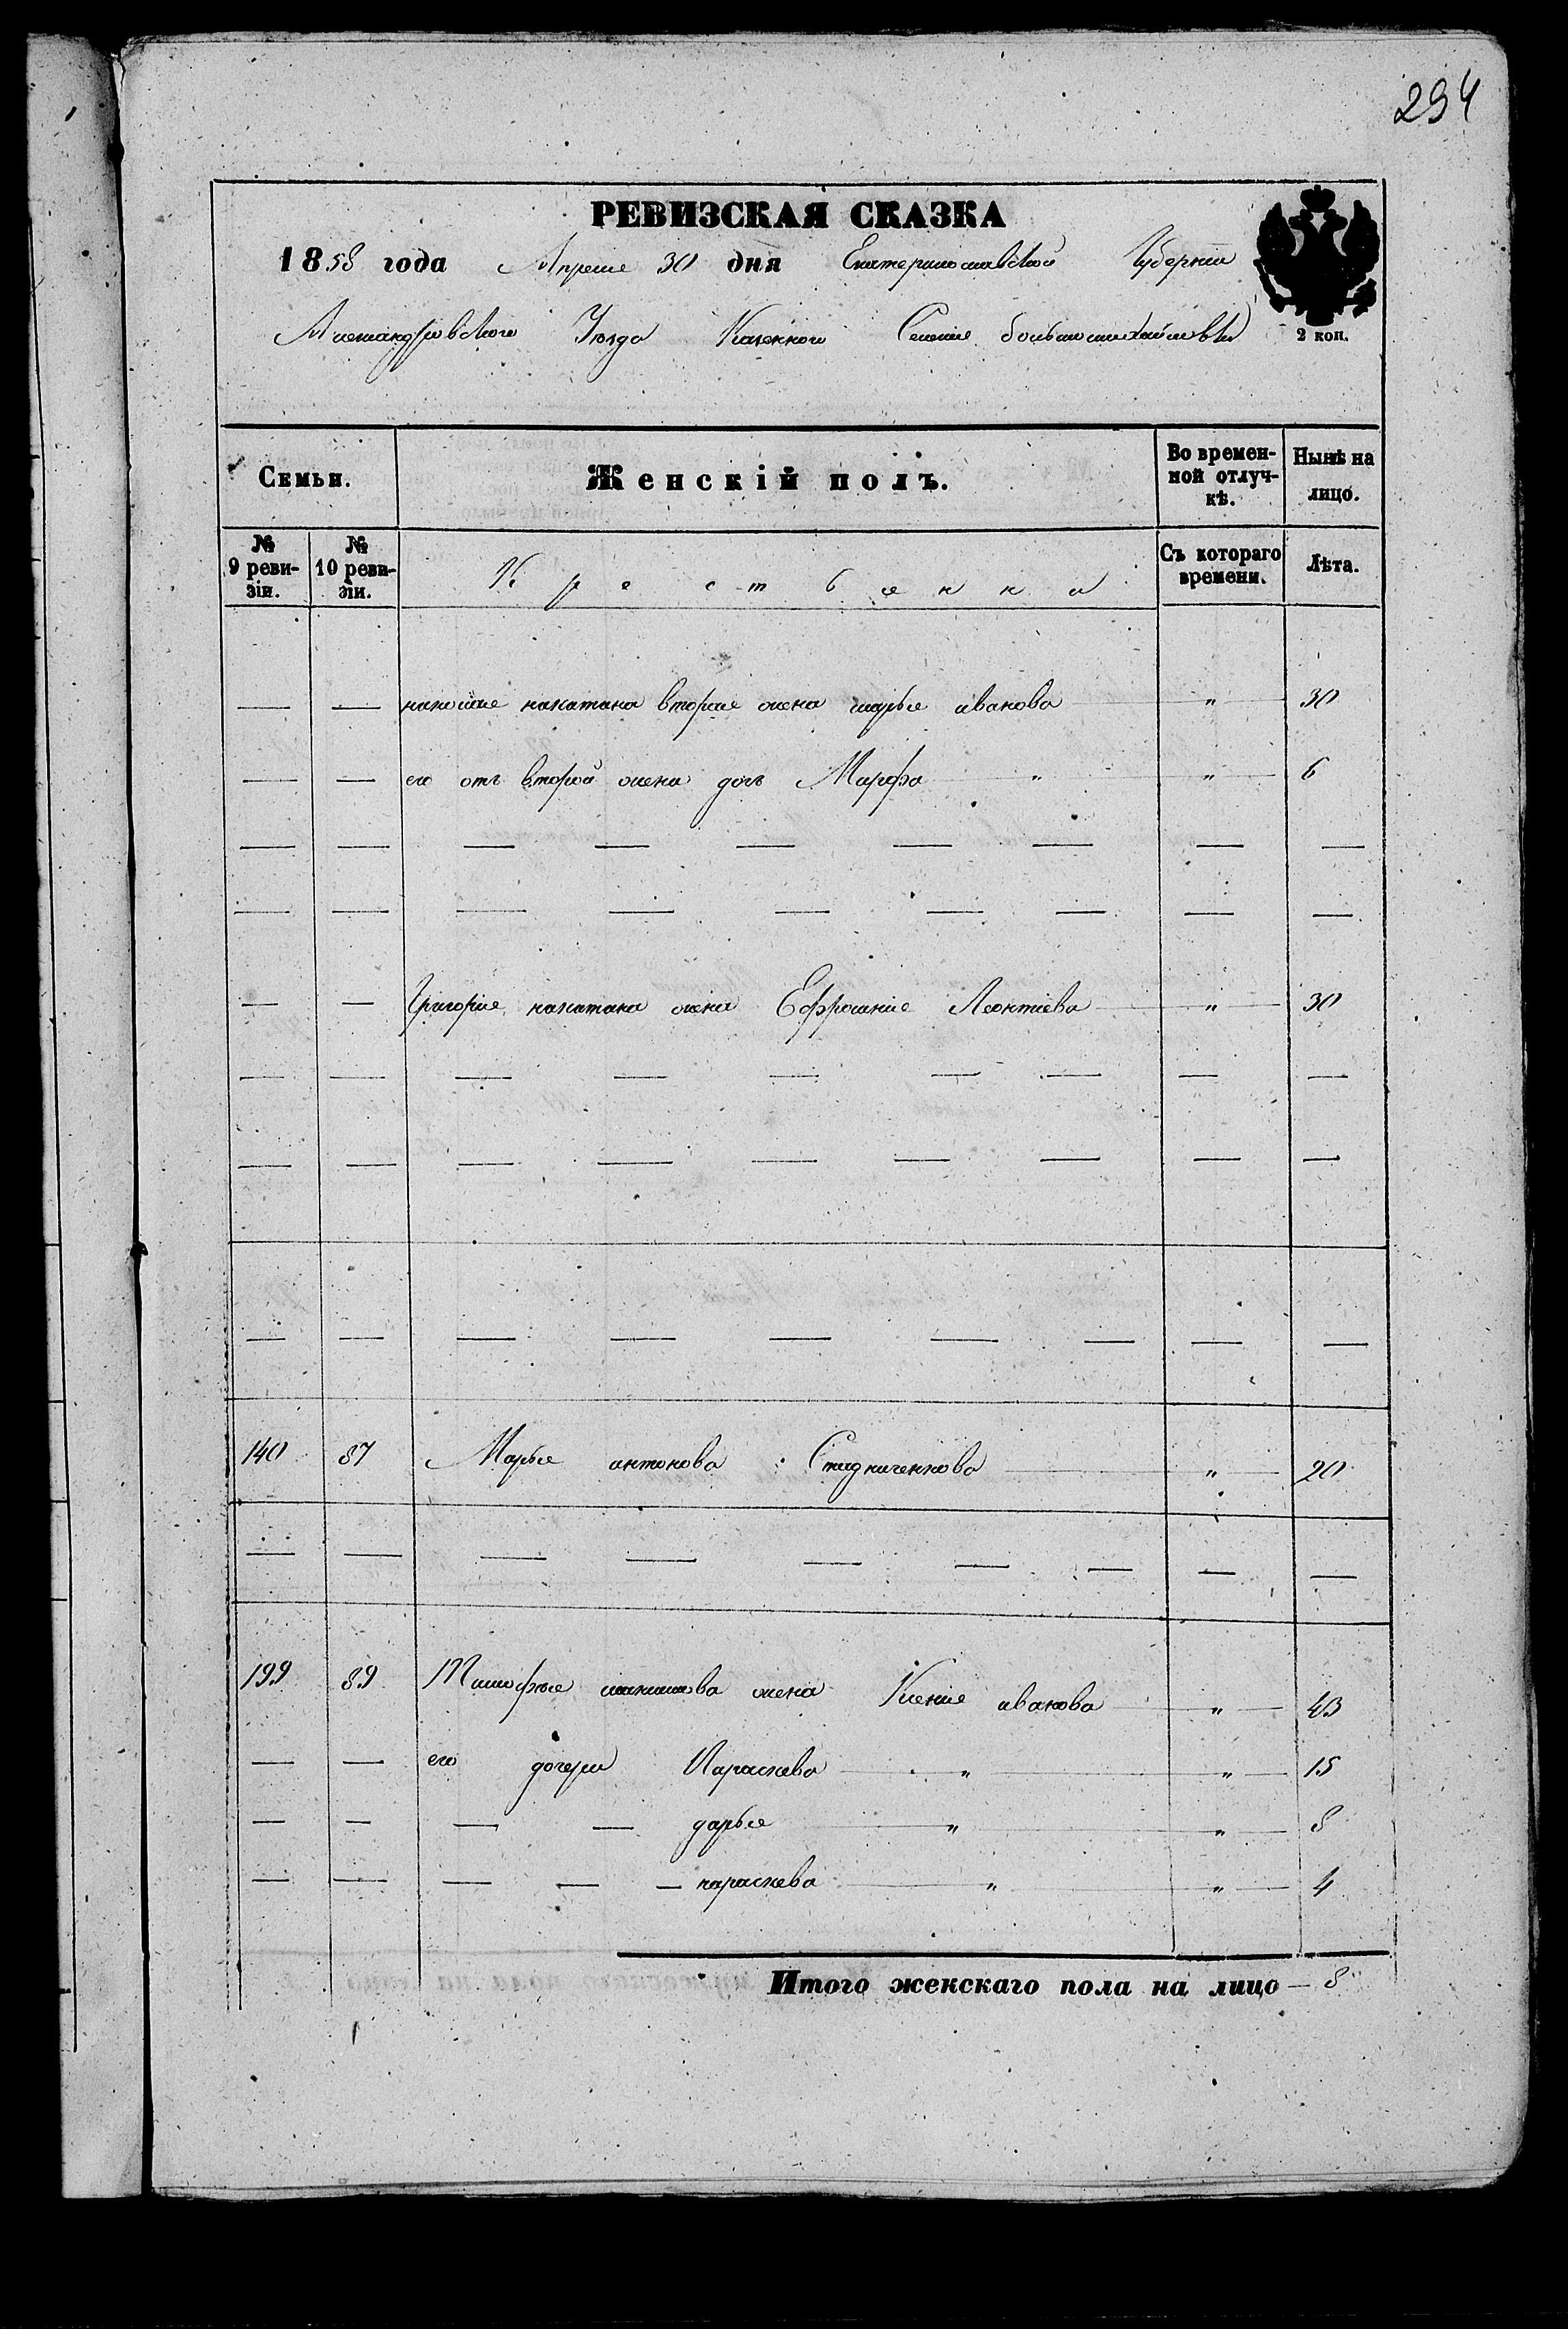 294
РЕВИЗСКАЯ СКАЗКА
1858 года Апреля 30 дня Екатеринославской Губернии
Александровского Уезда Казенного Селения большемихайловки
2 коп.
Семьи. Женскій полъ. Во времен- Нынѣ на
ной отлуч- лицо.
кѣ.
№ № Съ котораго Лѣта.
9 реви- 10 реви- Крестьянки времени.
зіи. зіи.
— — никопая вторая жена марья иванова " 30
— — его отъ второй жена дочь Марфа " " 6
— — — — — — — — —
— — — — — — — — —
— — Григорія жена Ефросинія Леонтіева " 30
— — — — — — — — —
— — — — — — — — —
— — — — — — — — —
140 87 Марья антонова Стадниченкова " 20
— — — — — — — — —
199 89 Тимофея жена Ксенія иванова " 43
— — его дочери Параскева " " 15
— — — — дарья " " 8
— — — — — параскева " " 4
Итого женскаго пола на лицо — 8